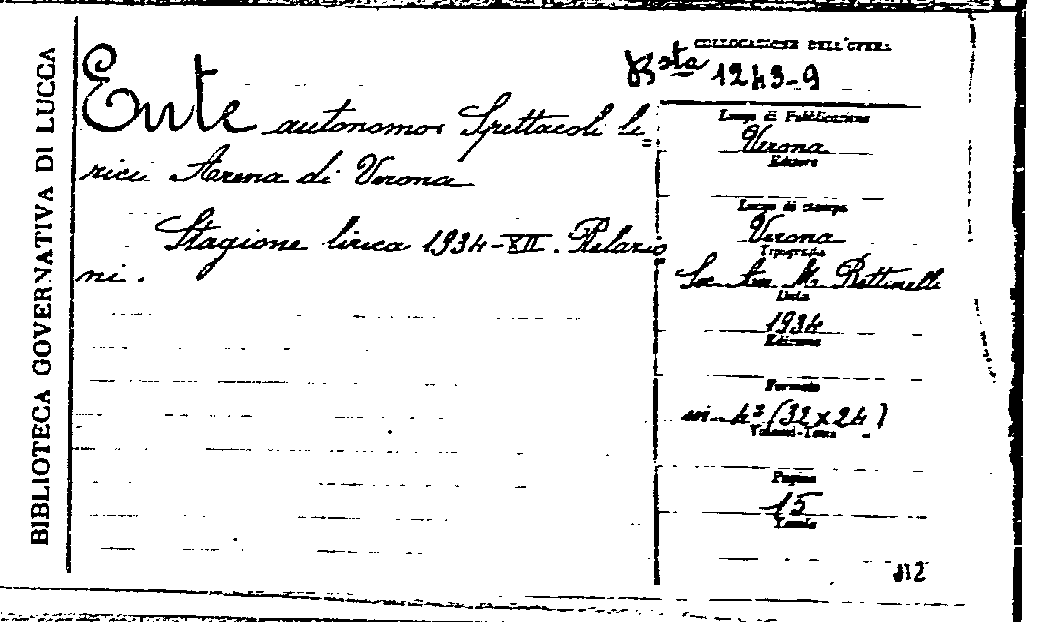 BIBLIOTECA GOVERNATIVA DI LUCCA
COLLOCAZIONE DELL'OPERA
Bsta 1243-9
Ente autonomo: Spettacoli li=
rici Arena di Verona
Stagione lirica 1934-XII. Relazio
ni.
Luogo di Pubblicazione
Verona
Editore
Luogo di stampa
Verona
Tipografia
Soc. An. M. Bettinelli
Data
1934
Edizione
Formato
in-4º (32x24)
Volumi-Tomo
Pagine
15
Tavole